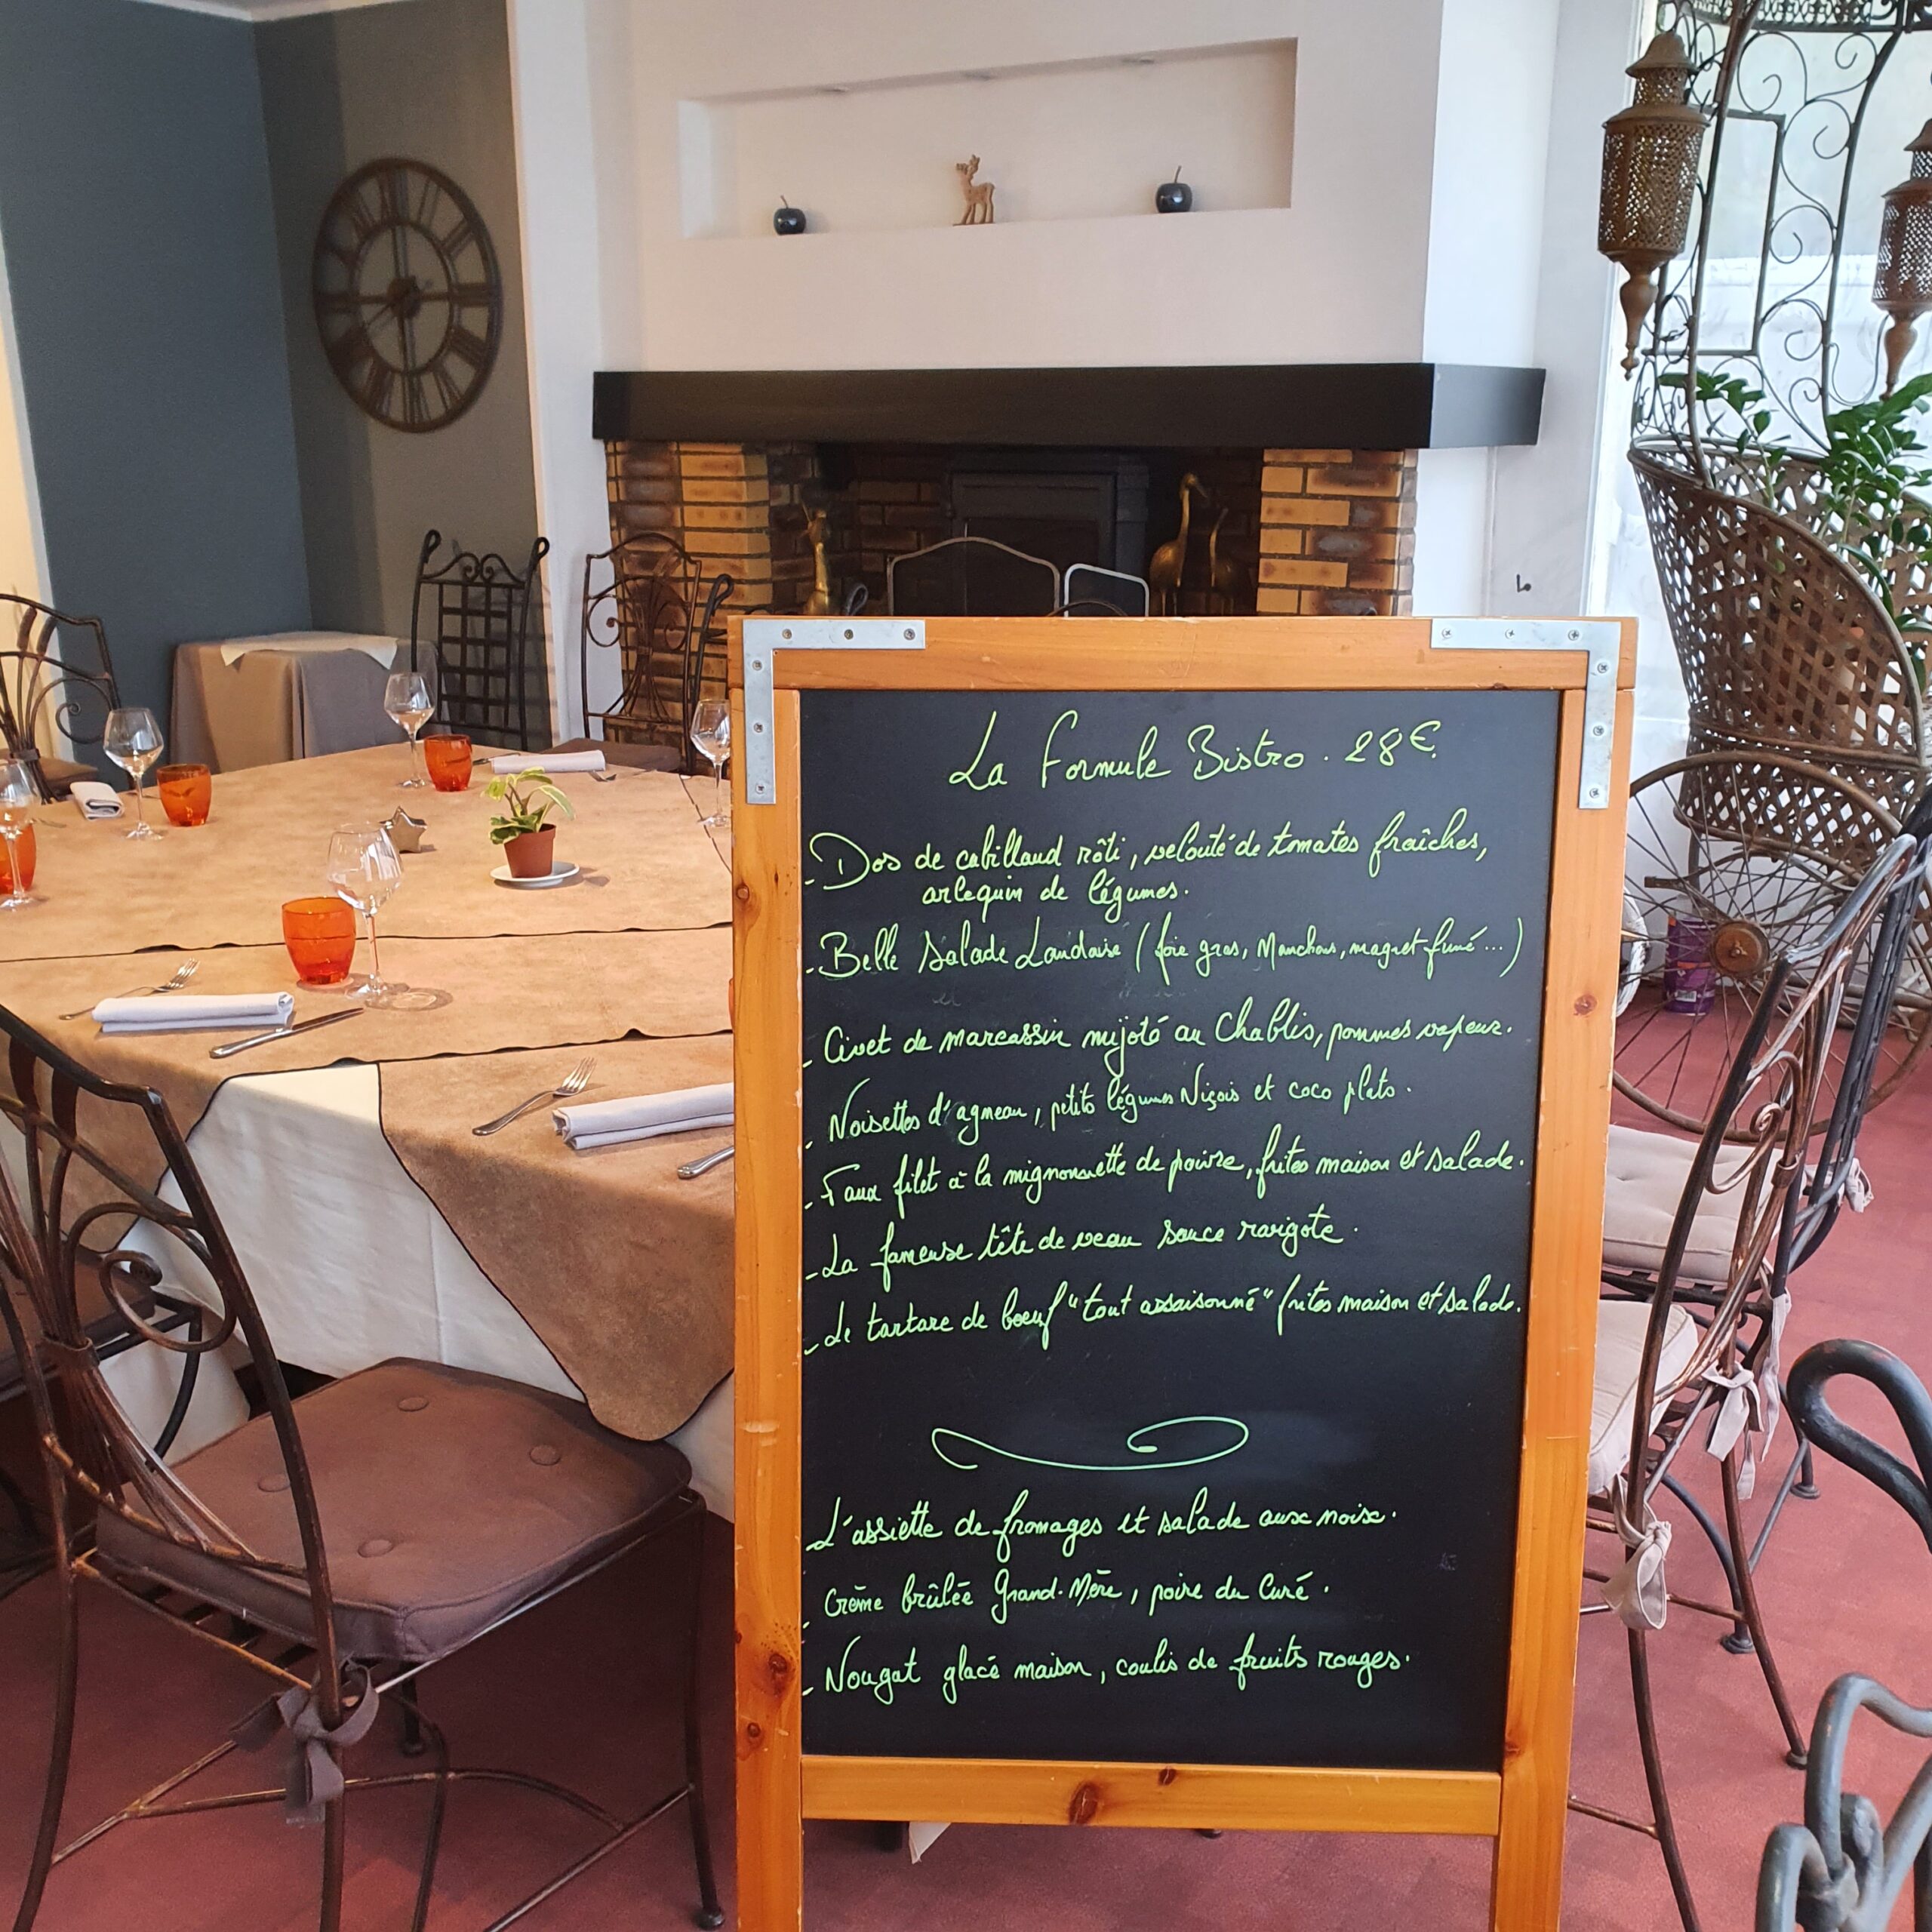 La Formule Bistro . 28€
- Dos de cabillaud rôti, velouté de tomates fraîches,
arlequin de légumes.
- Belle Salade Landaise (foie gras, Manchons, magret fumé...)
- Civet de marcassin mijoté au Chablis, pommes vapeur.
- Noisettes d'agneau, petits légumes Niçois et coco plats.
- Faux filet à la mignonnette de poivre, frites maison et salade.
- La fameuse tête de veau sauce ravigote.
- Le tartare de boeuf "tout assaisonné" frites maison et salade.
- L'assiette de fromages et salade aux noix.
- Crème brûlée Grand-Mère, poire du Curé.
- Nougat glacé maison, coulis de fruits rouges.